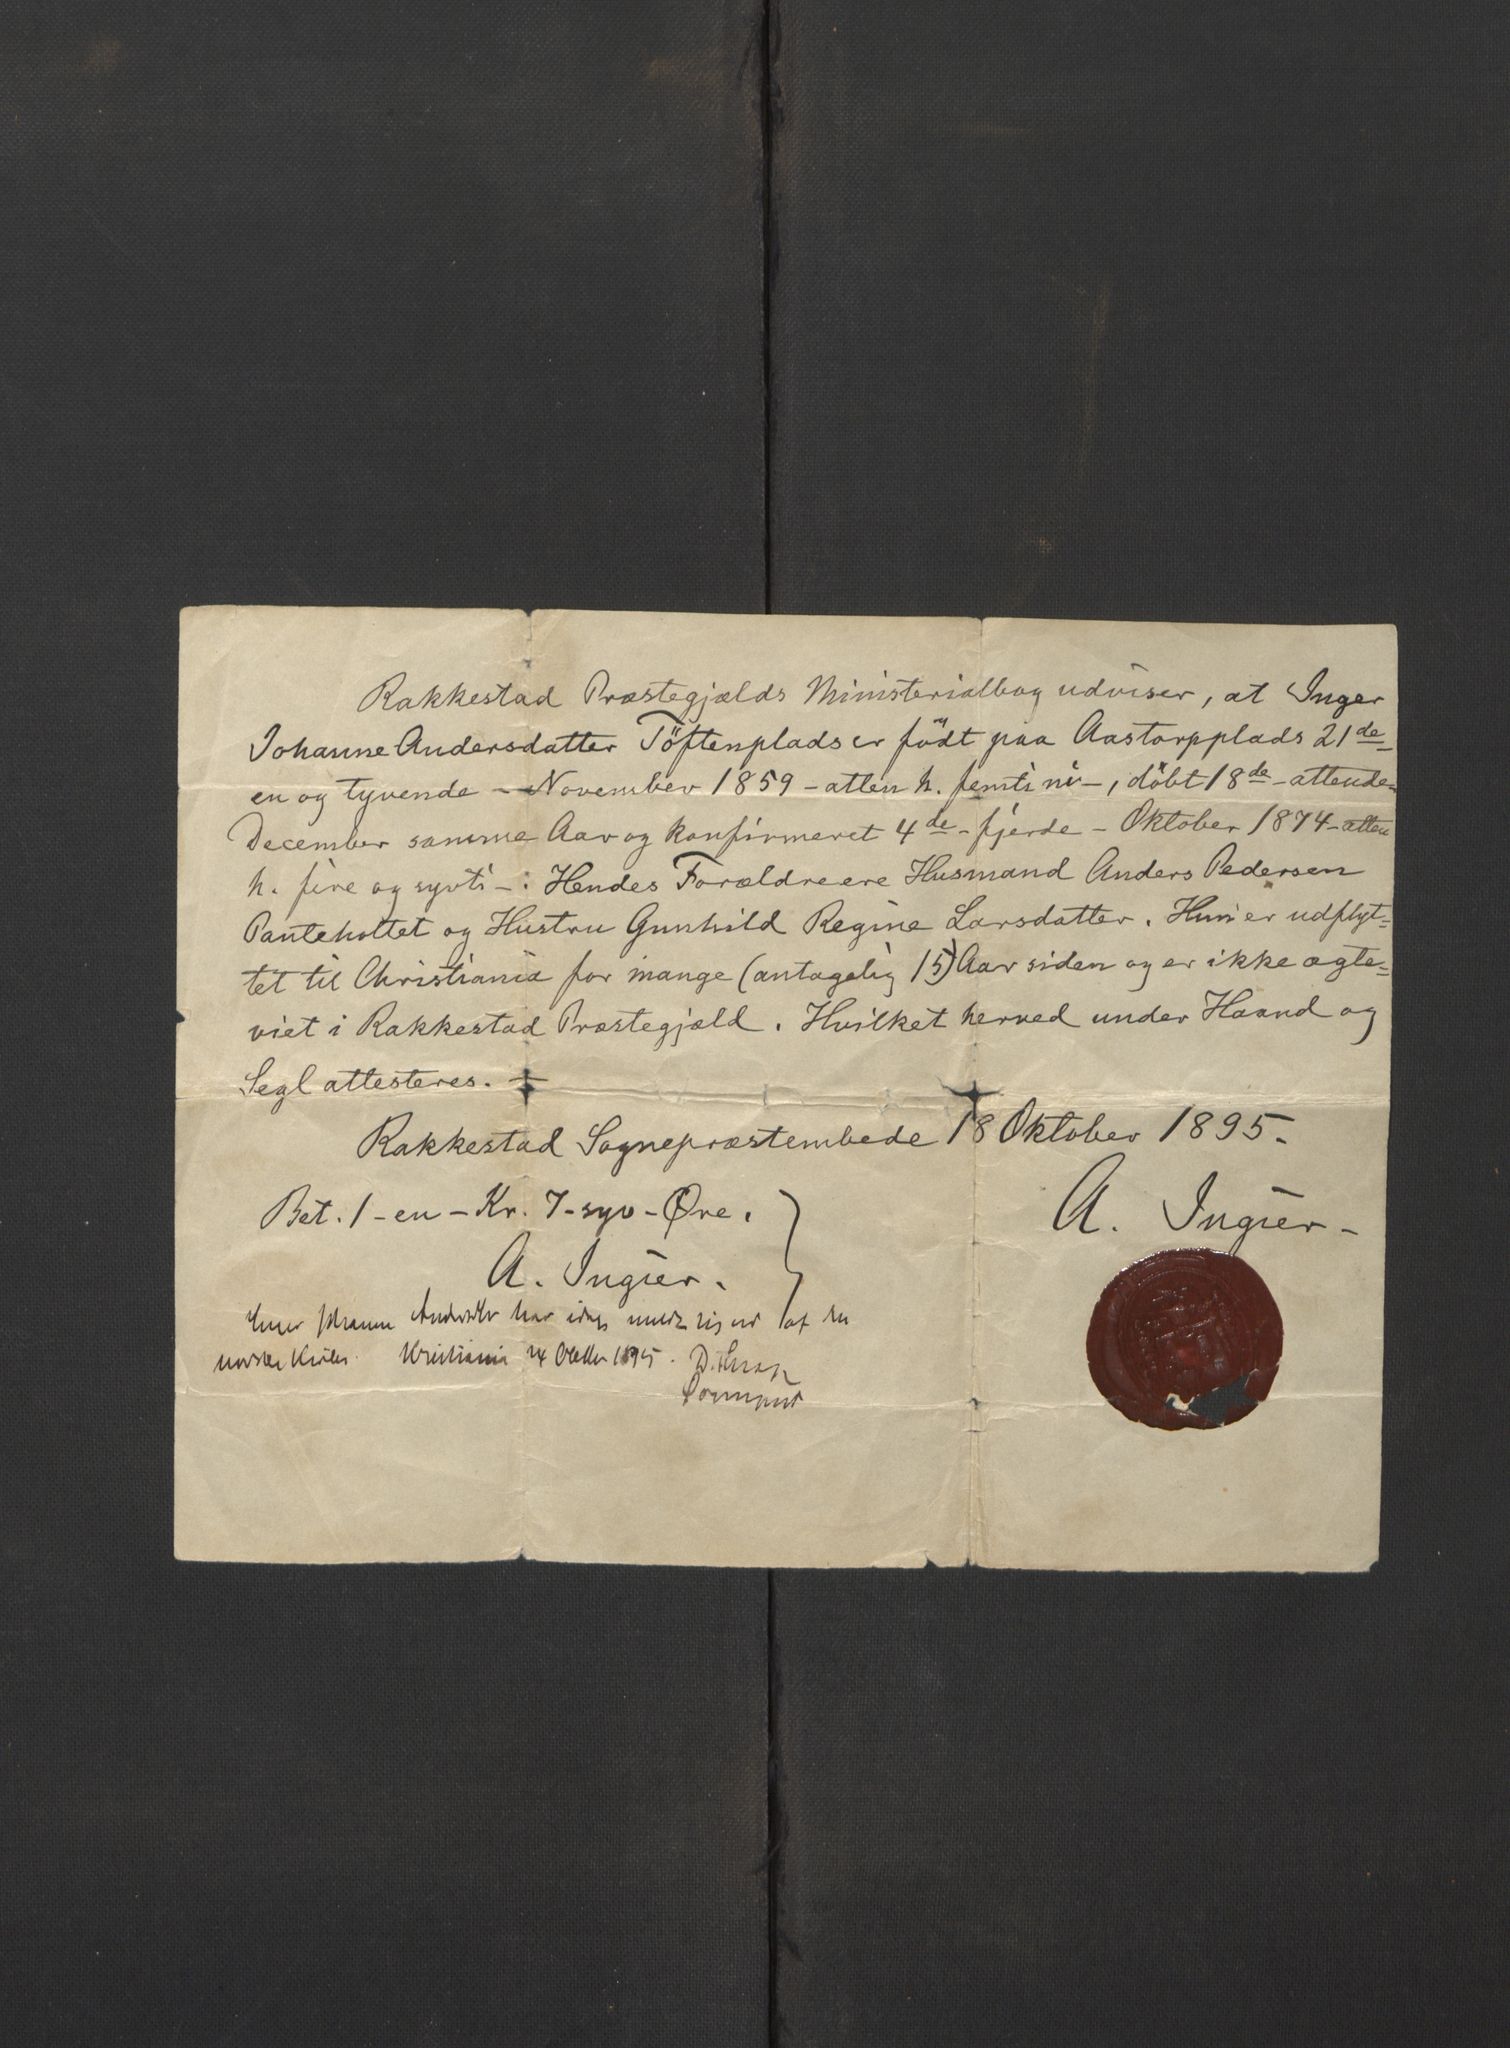 Rakkestad Præstegjælds Ministerialbog udviser, at Inger
Johanne Andersdatter Töftenplads er födt paa Aastorpplads 21de-
en og tyvende - November 1859 - atten h. femti ni -, döbt 18de - attenden
December samme Aar og konfirmeret 4de - fjerde - Oktober 1874 - atten
h. fire og sytti -. Hendes Forældre ere Husmand Anders Pedersen
Panteholtet og Hustru Gunhild Regine Larsdatter. Hun er udflyt=
tet til Christiania for mange (antagelig 15) Aar siden og er ikke ægte=
viet i Rakkestad Præstegjæld. Hvilket herved under Haand og
Segl attesteres.
Rakkestad Sognepræstembede 18 Oktober 1895.
Bet. 1 - en - Kr. 7 - syv - Øre.
A. Ingier -
A. Ingier.
Inger Johanne Andersdtr har idag meldt sig ud af den
norske Kirke. Kristiania 24 Oktbr 1895.
Sognepræst